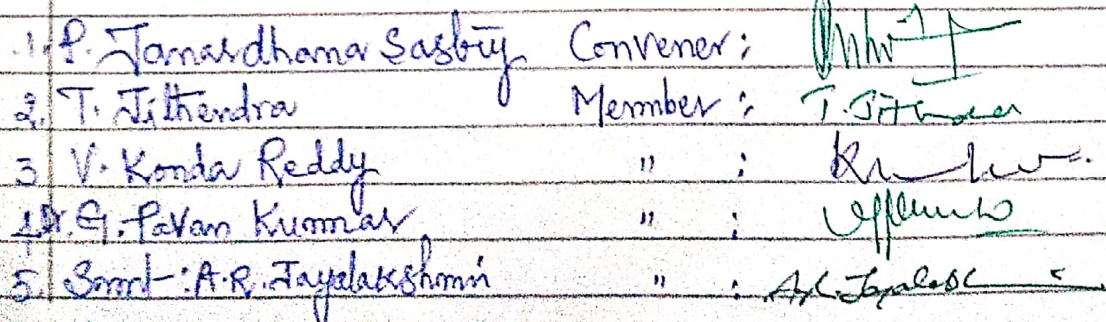 1. P. Janardhana Sastry Convener :
2. T. Jithendra Member : T. Jithendra
3 V. Konda Reddy " :
4 Dr. G. Pavan Kumar " :
5. Smt : A.R. Jayalakshmi " : A.R. Jayalaksh